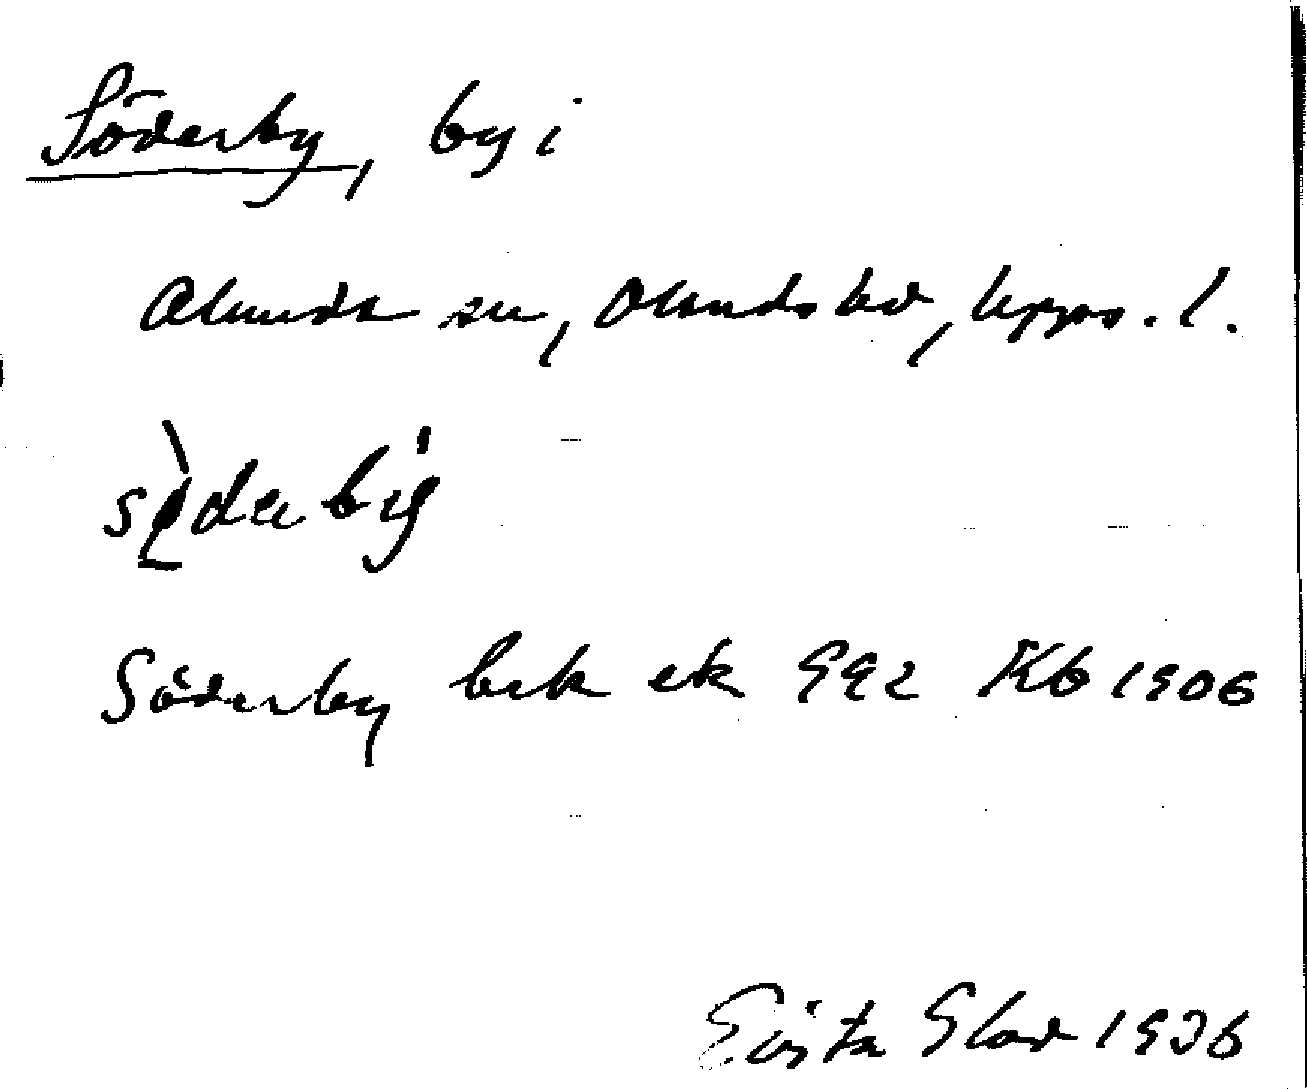 Söderby, by i
Alunda sn, Olands hd, Upps. l.
Söderby bek ek 992 Kb 1906
Gösta Glad 1936